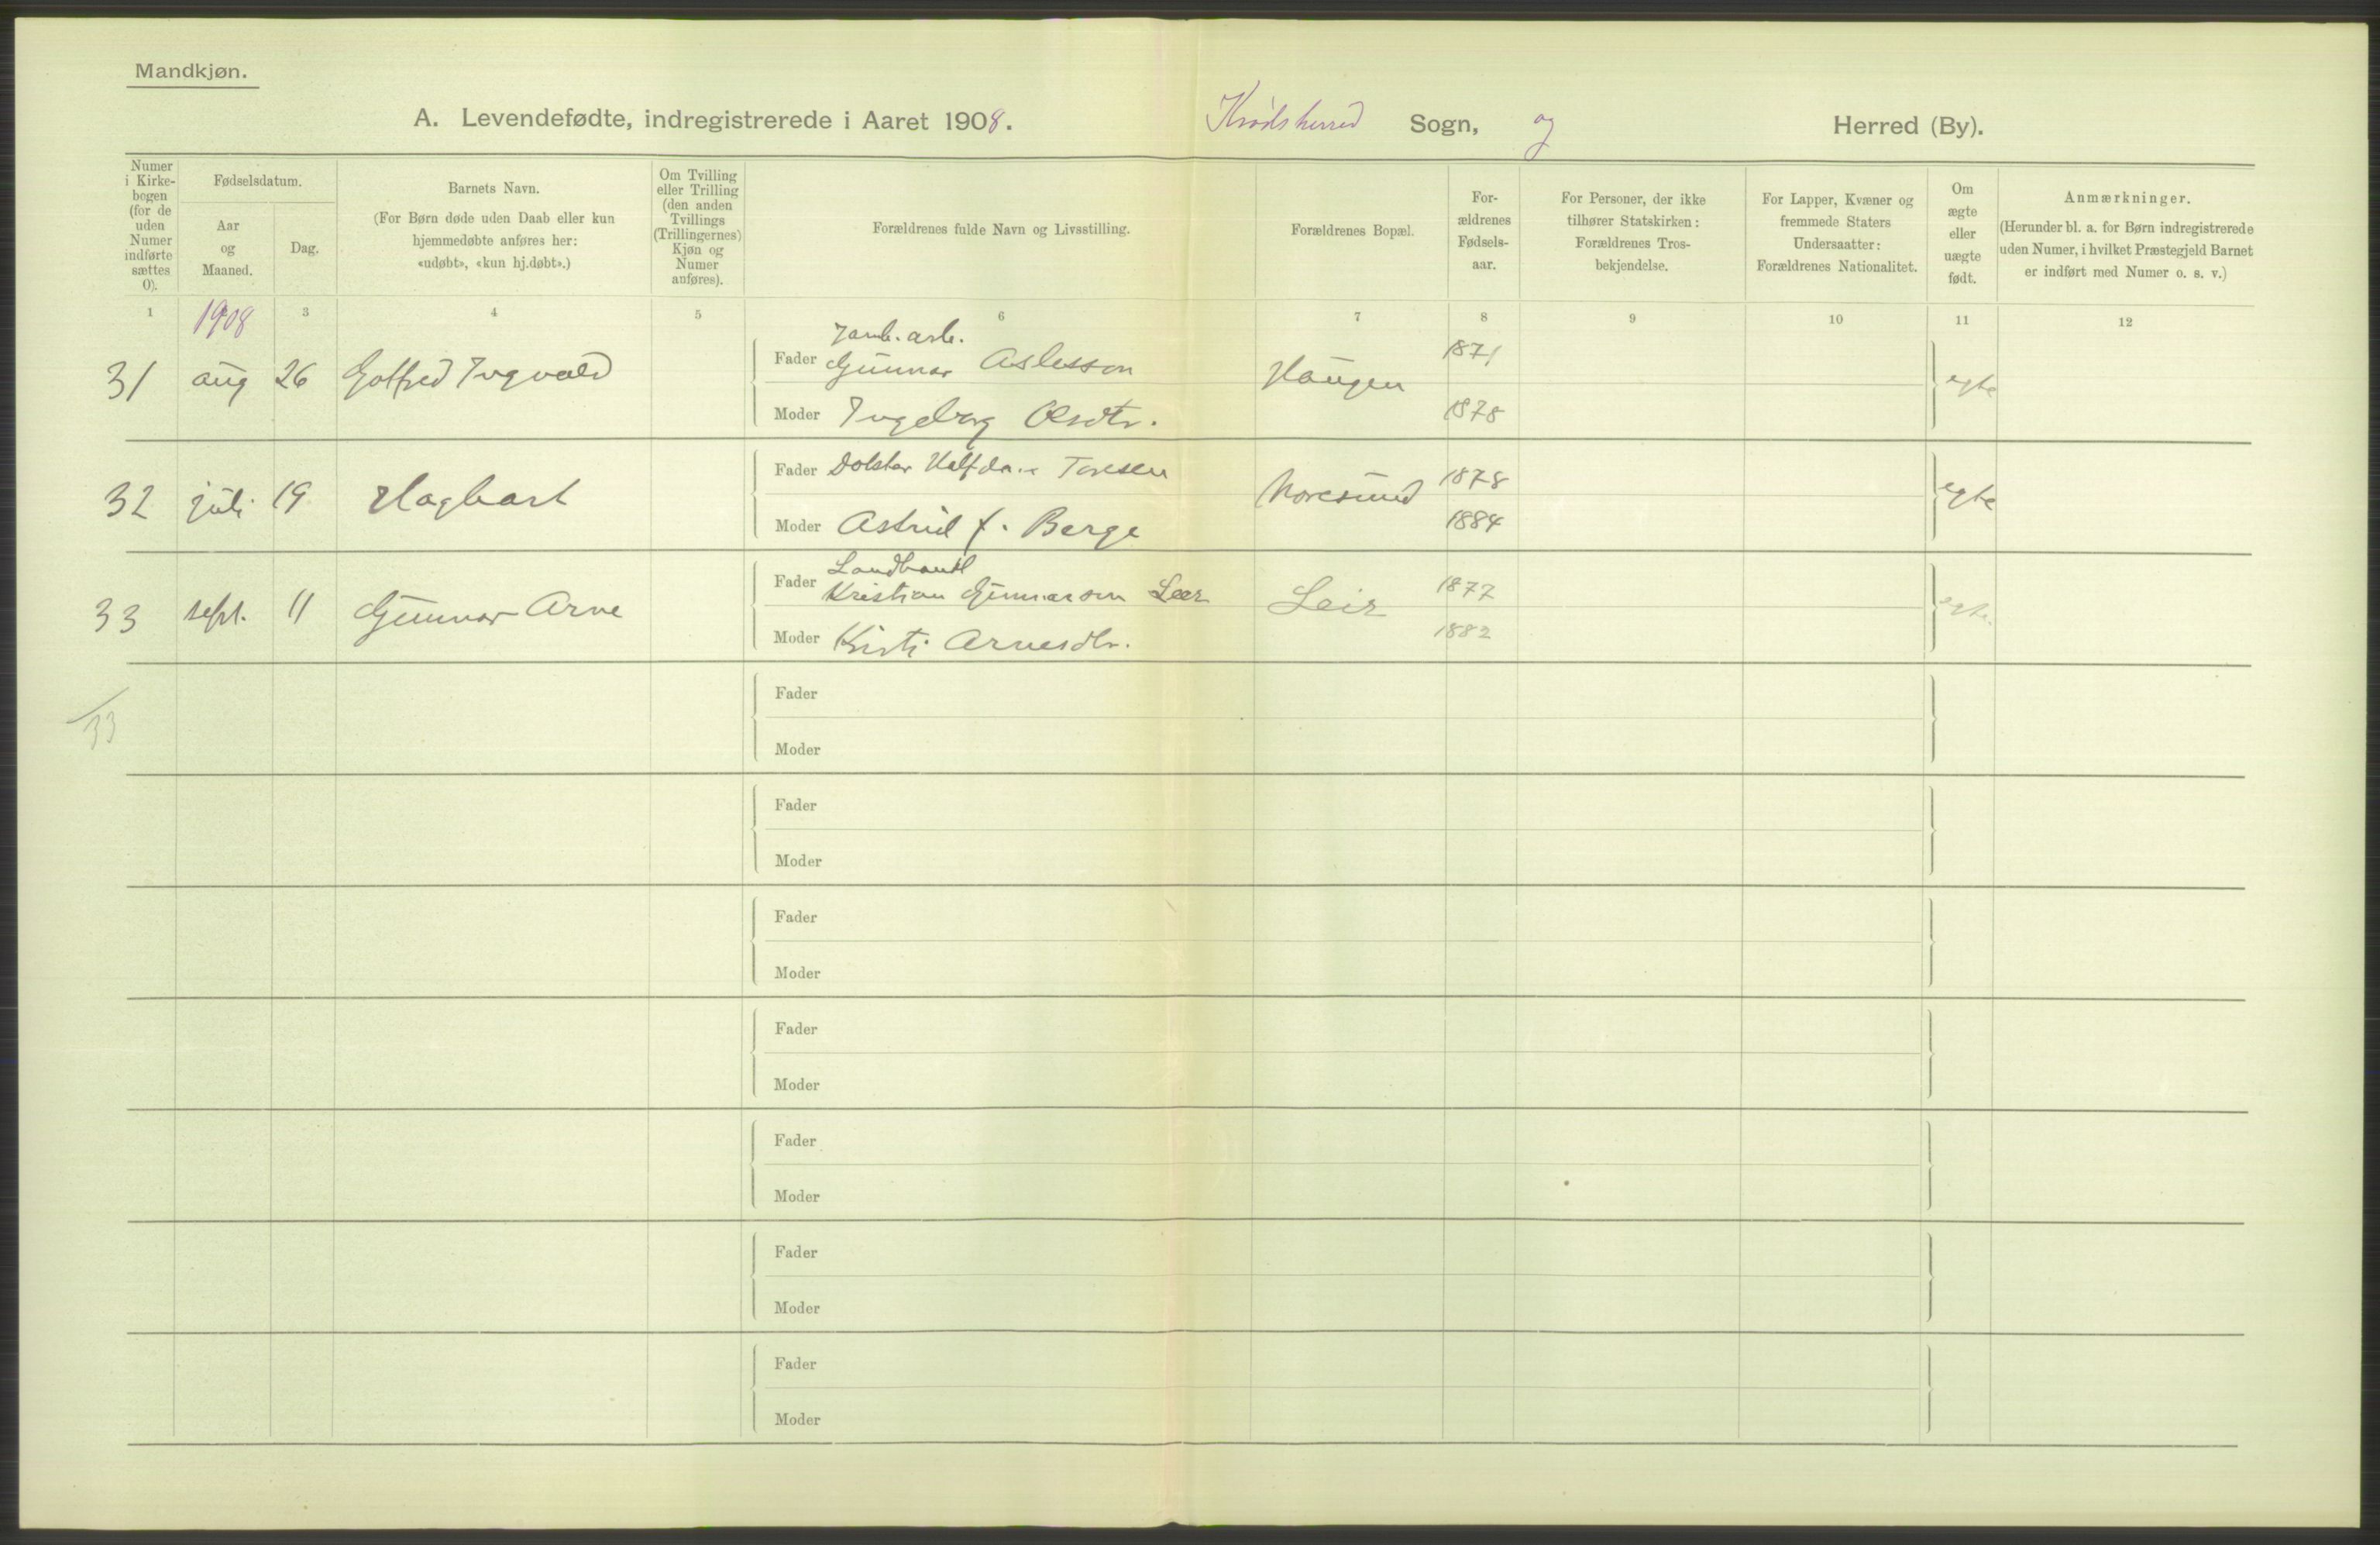 Mandkjøn.
A. Levendefødte, indregistrerede i Aaret 1908. Krødsherred Sogn, og Herred (By).
Numer i Kirkebogen (for de uden Numer indførte sættes 0).
Fødselsdatum.
Aar og Maaned.
Dag.
Barnets Navn.
(For Børn døde uden Daab eller kun
hjemmedøbte anføres her:
«udøbt», «kun hj.døbt».)
Om Tvilling
eller Trilling
(den anden
Tvillings
(Trillingernes)
Kjøn og
Numer
anføres).
Forældrenes fulde Navn og Livsstilling.
Forældrenes Bopæl.
For-
ældrenes
Fødsels-
aar.
For Personer, der ikke
tilhører Statskirken:
Forældrenes Tros-
bekjendelse.
For Lapper, Kvæner og
fremmede Staters
Undersaatter:
Forældrenes Nationalitet.
Om
ægte
eller
uægte
født.
Anmærkninger.
(Herunder bl. a. for Børn indregistrerede
uden Numer, i hvilket Præstegjeld Barnet
er indført med Numer o. s. v.)
1 1908 3 4 5 6 7 8 9 10 11 12
Jarnb. arb.
31 aug 26 Gotfred Ingvald Fader Gunnar Aslesson Haugen 1871 egte
Moder Ingeborg Olsdtr. 1878
32 juli 19 Hagbart Fader Halfdan Toresen Noresund 1878 egte
Moder Astrid f. Berge 1884
Landhandl
33 sept. 11 Gunnar Arne Fader Kristian Gunnarson Leer Leir 1877 egte
Moder Kirsti Arnesdtr. 1882
33
Fader
Moder
Fader
Moder
Fader
Moder
Fader
Moder
Fader
Moder
Fader
Moder
Fader
Moder